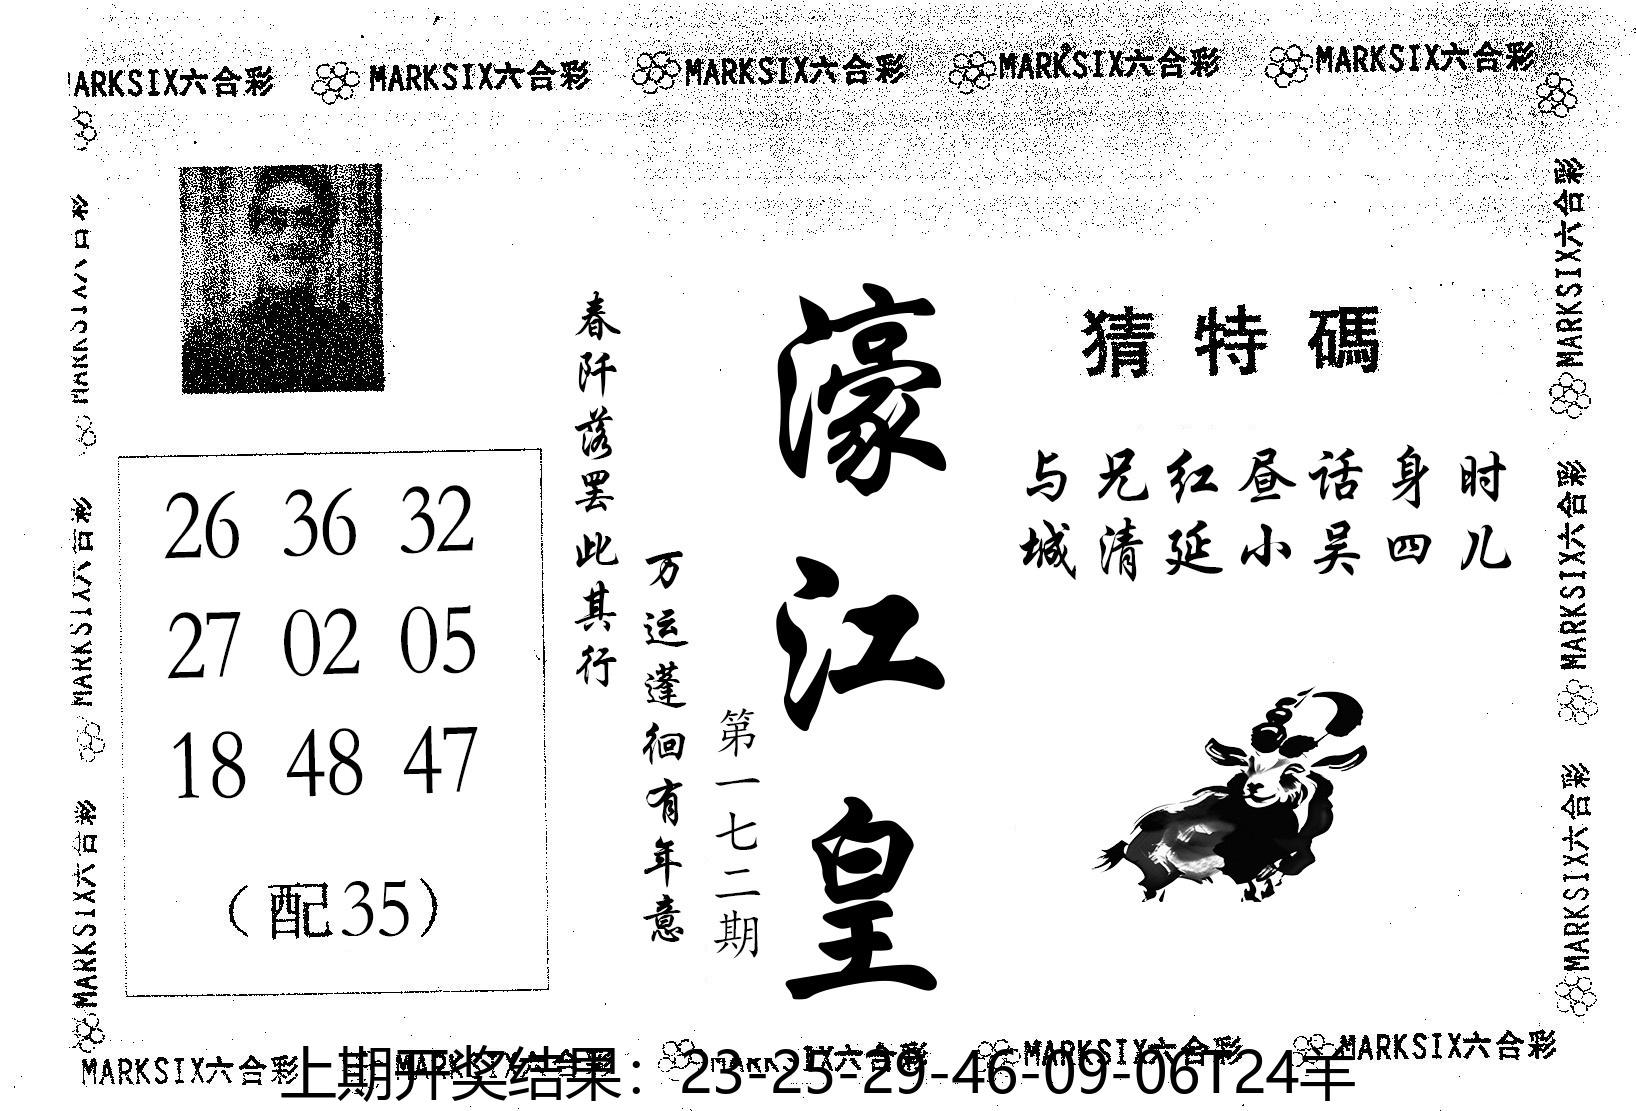 MARKSIX六合彩 MARKSIX六合彩 MARKSIX六合彩 MARKSIX六合彩 MARKSIX六合彩
MARKSIX六合彩
MARKSIX六合彩
MARKSIX六合彩
猜特碼
与兄红昼话身时
城清延小吴四儿
濠江皇
第一七二期
万运蓬徊有年意
春阡落罢此其行
26 36 32
27 02 05
18 48 47
（配35）
MARKSIX六合彩
MARKSIX六合彩
MARKSIX六合彩
MARKSIX六合彩 MARKSIX六合彩 MARKSIX六合彩 MARKSIX六合彩 MARKSIX六合彩
上期开奖结果：23-25-29-46-09-06T24羊